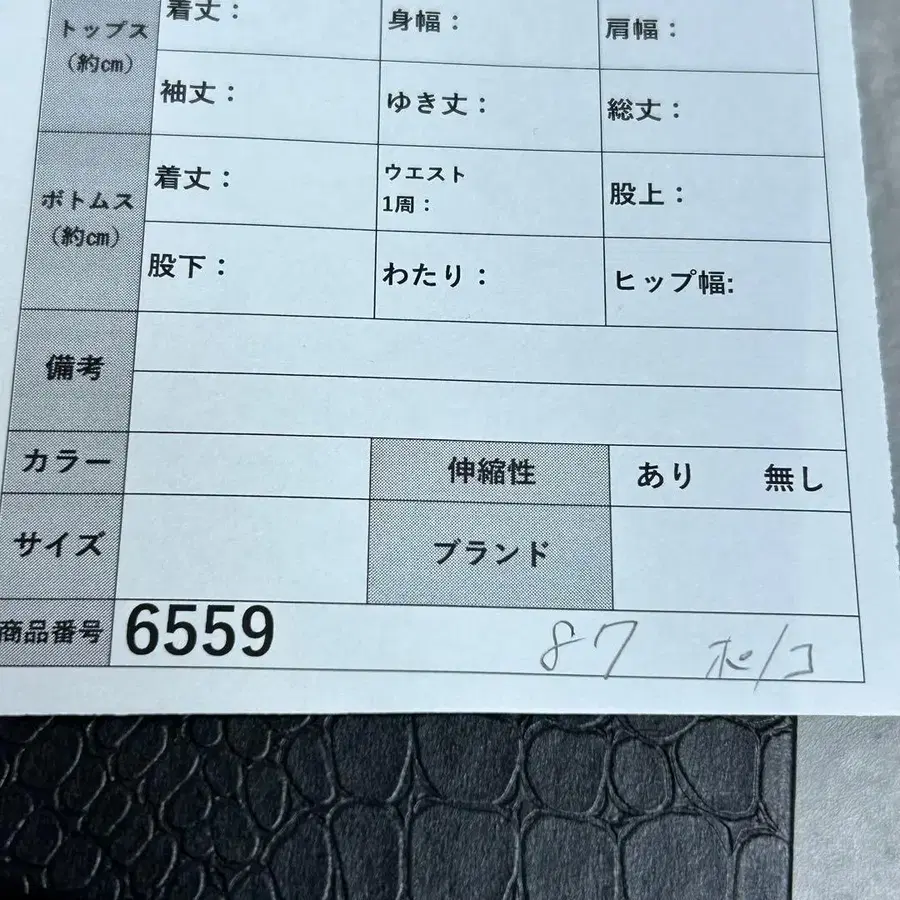 トップス 着丈： 身幅： 肩幅：
（約cm） 袖丈： ゆき丈： 総丈：
ボトムス 着丈： ウエスト 股上：
1周：
（約cm） 股下： わたり： ヒップ幅:
備考
カラー 伸縮性 あり 無し
サイズ ブランド
商品番号 6559 87